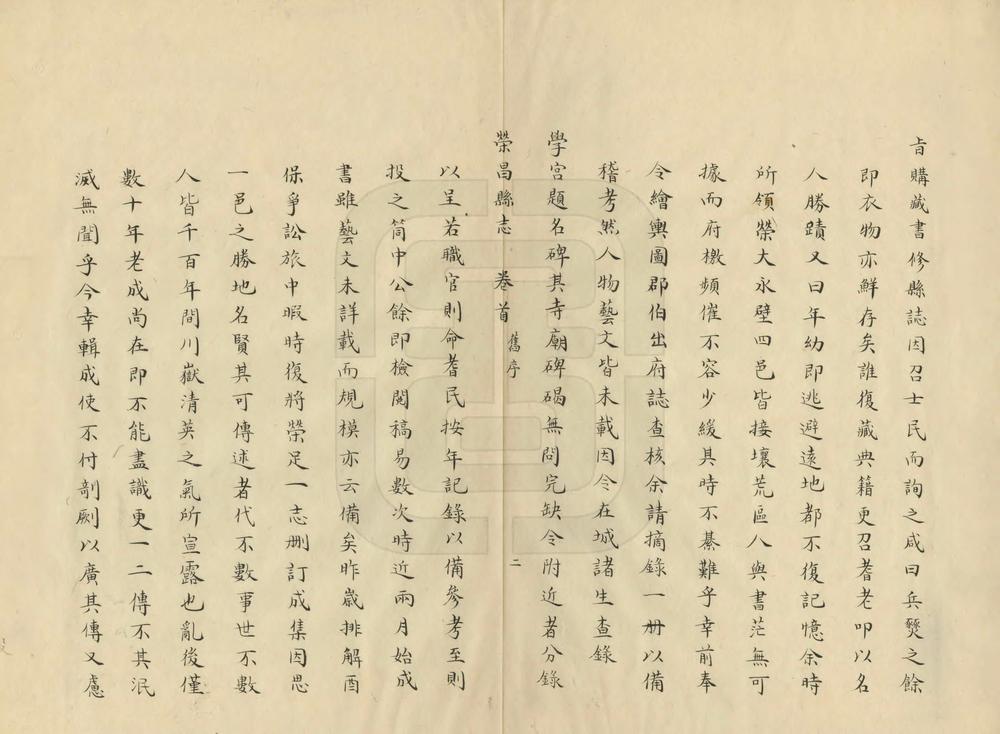 旨購藏書修縣誌因召士民而詢之咸曰兵燹之餘
即衣物亦鮮存矣誰復藏典籍更召耆老叩以名
人勝蹟又曰年幼即逃避遠地都不復記憶余時
所領榮大永壁四邑皆接壤荒區人與書茫無可
據而府檄頻催不容少緩其時不綦難乎幸前奉
令繪輿圖郡伯出府誌查核余請摘錄一册以備
稽考然人物藝文皆未載因令在城諸生查錄
學宮題名碑其寺廟碑碣無問完缺令附近者分錄
榮昌縣志 卷首 舊序 二
以呈若職官則命耆民按年記錄以備參考至則
投之筒中公餘即檢閱稿易數次時近兩月始成
書雖藝文未詳載而規模亦云備矣昨歲排解酉
保爭訟旅中暇時復將榮足一志删訂成集因思
一邑之勝地名賢其可傳述者代不數事世不數
人皆千百年間川嶽清英之氣所宣露也亂後僅
數十年老成尚在即不能盡識更一二傳不其泯
滅無聞乎今幸輯成使不付剞劂以廣其傳又慮